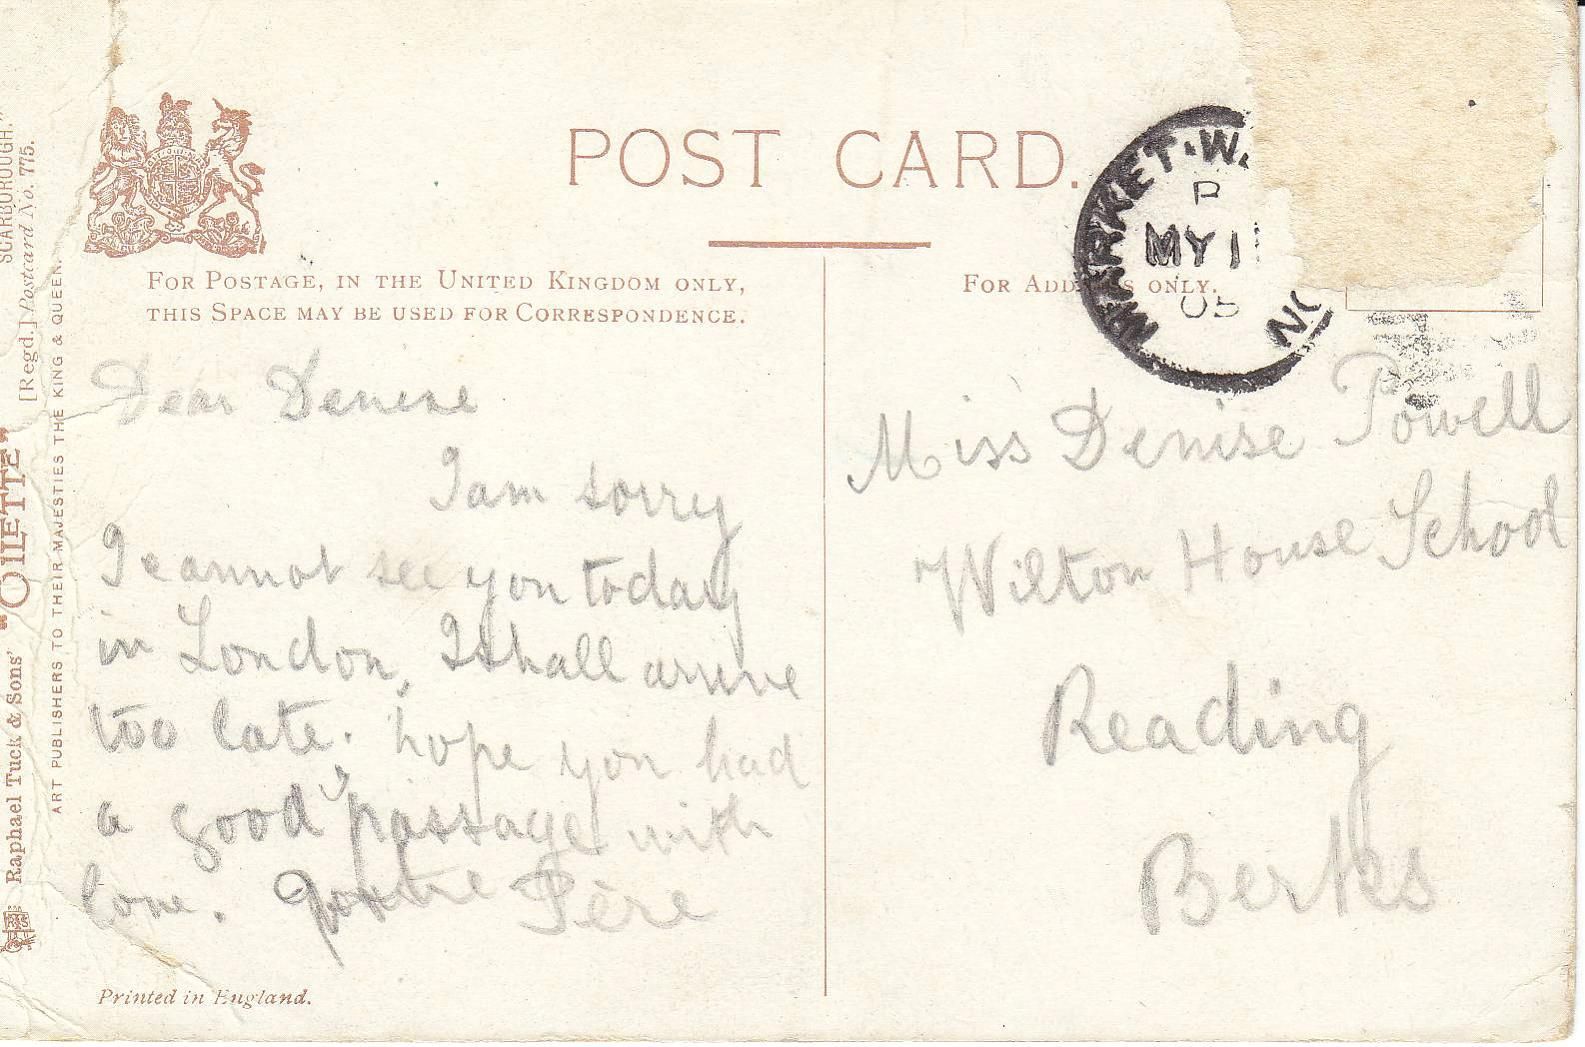 POST CARD.
FOR POSTAGE, IN THE UNITED KINGDOM ONLY,
THIS SPACE MAY BE USED FOR CORRESPONDENCE.
FOR ADD S ONLY.
MARKET·W.
MY 1
05
Dear Denise
I am sorry
I cannot see you today
in London, I shall arrive
too late. hope you had
a good passage with
love. Père
Miss Denise Powell
Wilton House School
Reading
Berks
Printed in England.
Raphael Tuck & Sons' "OILETTE" [Regd.] Postcard No. 775.
SCARBOROUGH."
ART PUBLISHERS TO THEIR MAJESTIES THE KING & QUEEN.